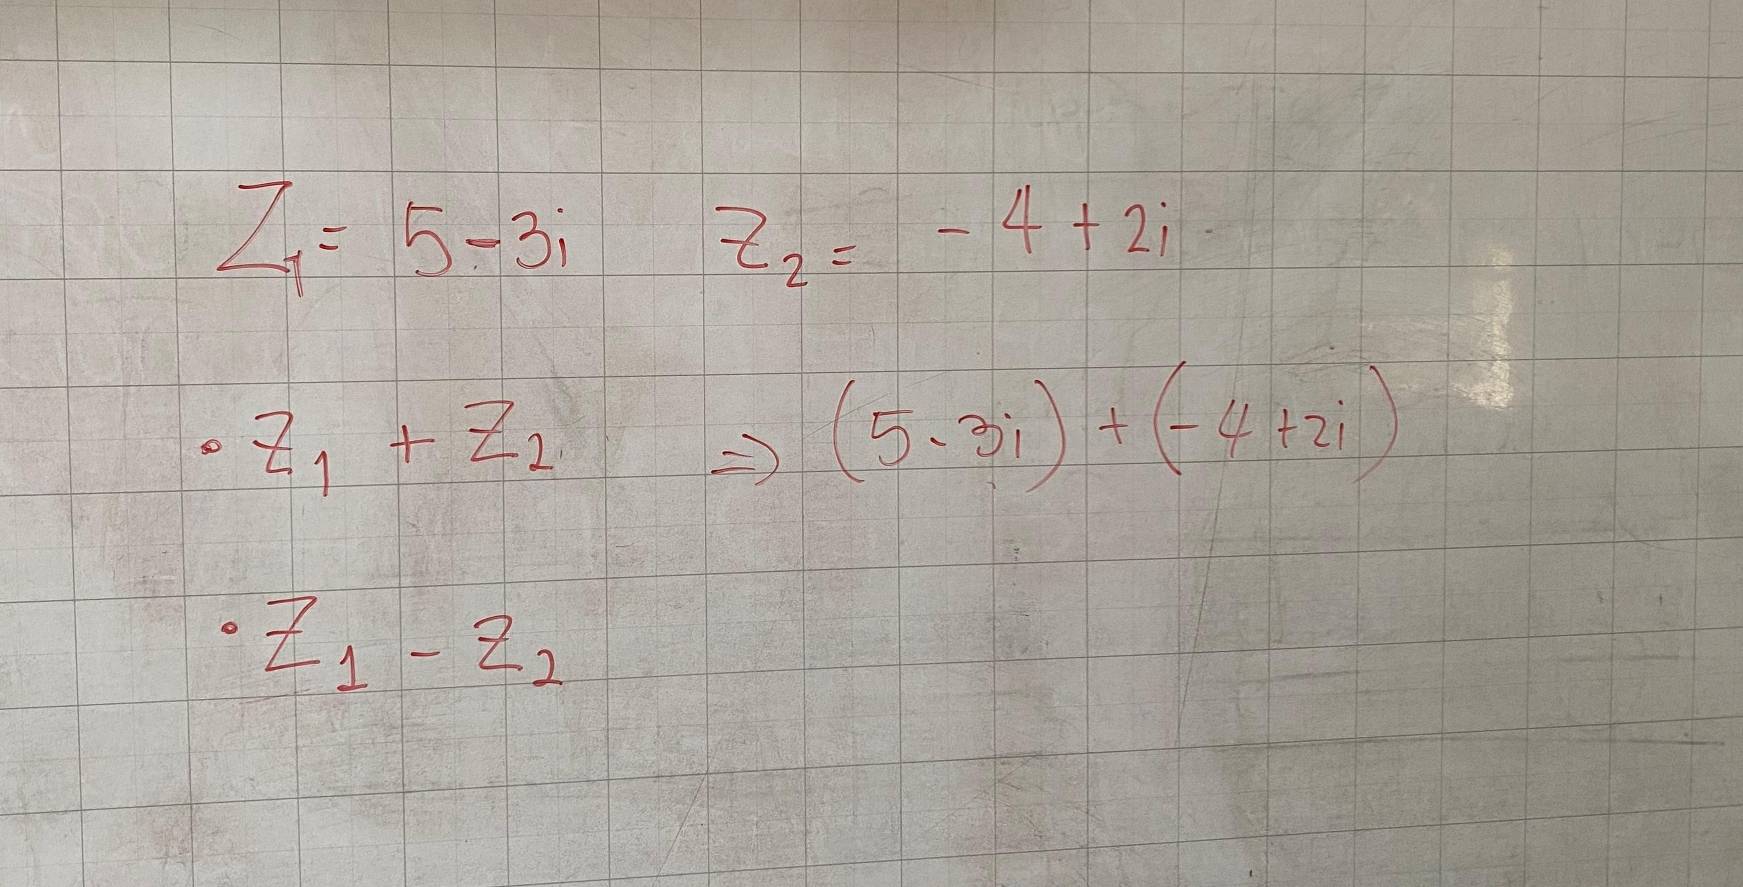 Z₁ = 5-3i Z₂ = -4+2i
• Z₁ + Z₂ ⇒ (5-3i)+(-4+2i)
• Z₁ - Z₂